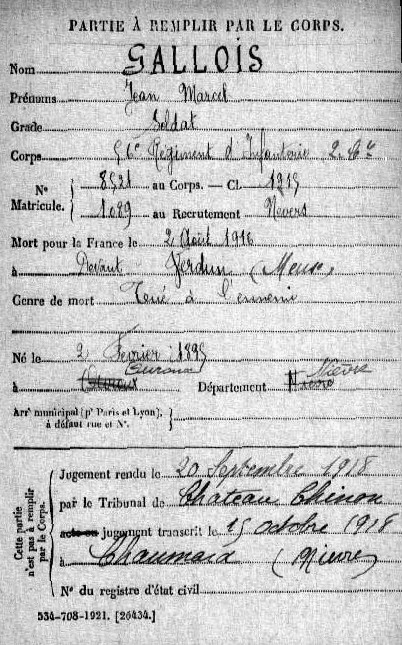 PARTIE À REMPLIR PAR LE CORPS.
Nom GALLOIS
Prénoms Jean Marcel
Grade Soldat
Corps 56e Régiment d'Infanterie 2e Cie
N° Matricule. 8521 au Corps. — Cl. 1915
1089 au Recrutement Nevers
Mort pour la France le 2 Août 1916
à Devant Verdun (Meuse)
Genre de mort Tué à l'ennemi
Né le 2 Février 1895
à Département Nièvre Nièvre
Arrt municipal (pr Paris et Lyon),
à défaut rue et N°.
Cette partie n'est pas à remplir par le Corps.
Jugement rendu le 20 Septembre 1918
par le Tribunal de Chateau Chinon
acte ou jugement transcrit le 15 octobre 1918
à Chaumard (Nièvre)
N° du registre d'état civil
534-708-1921. [26434.]